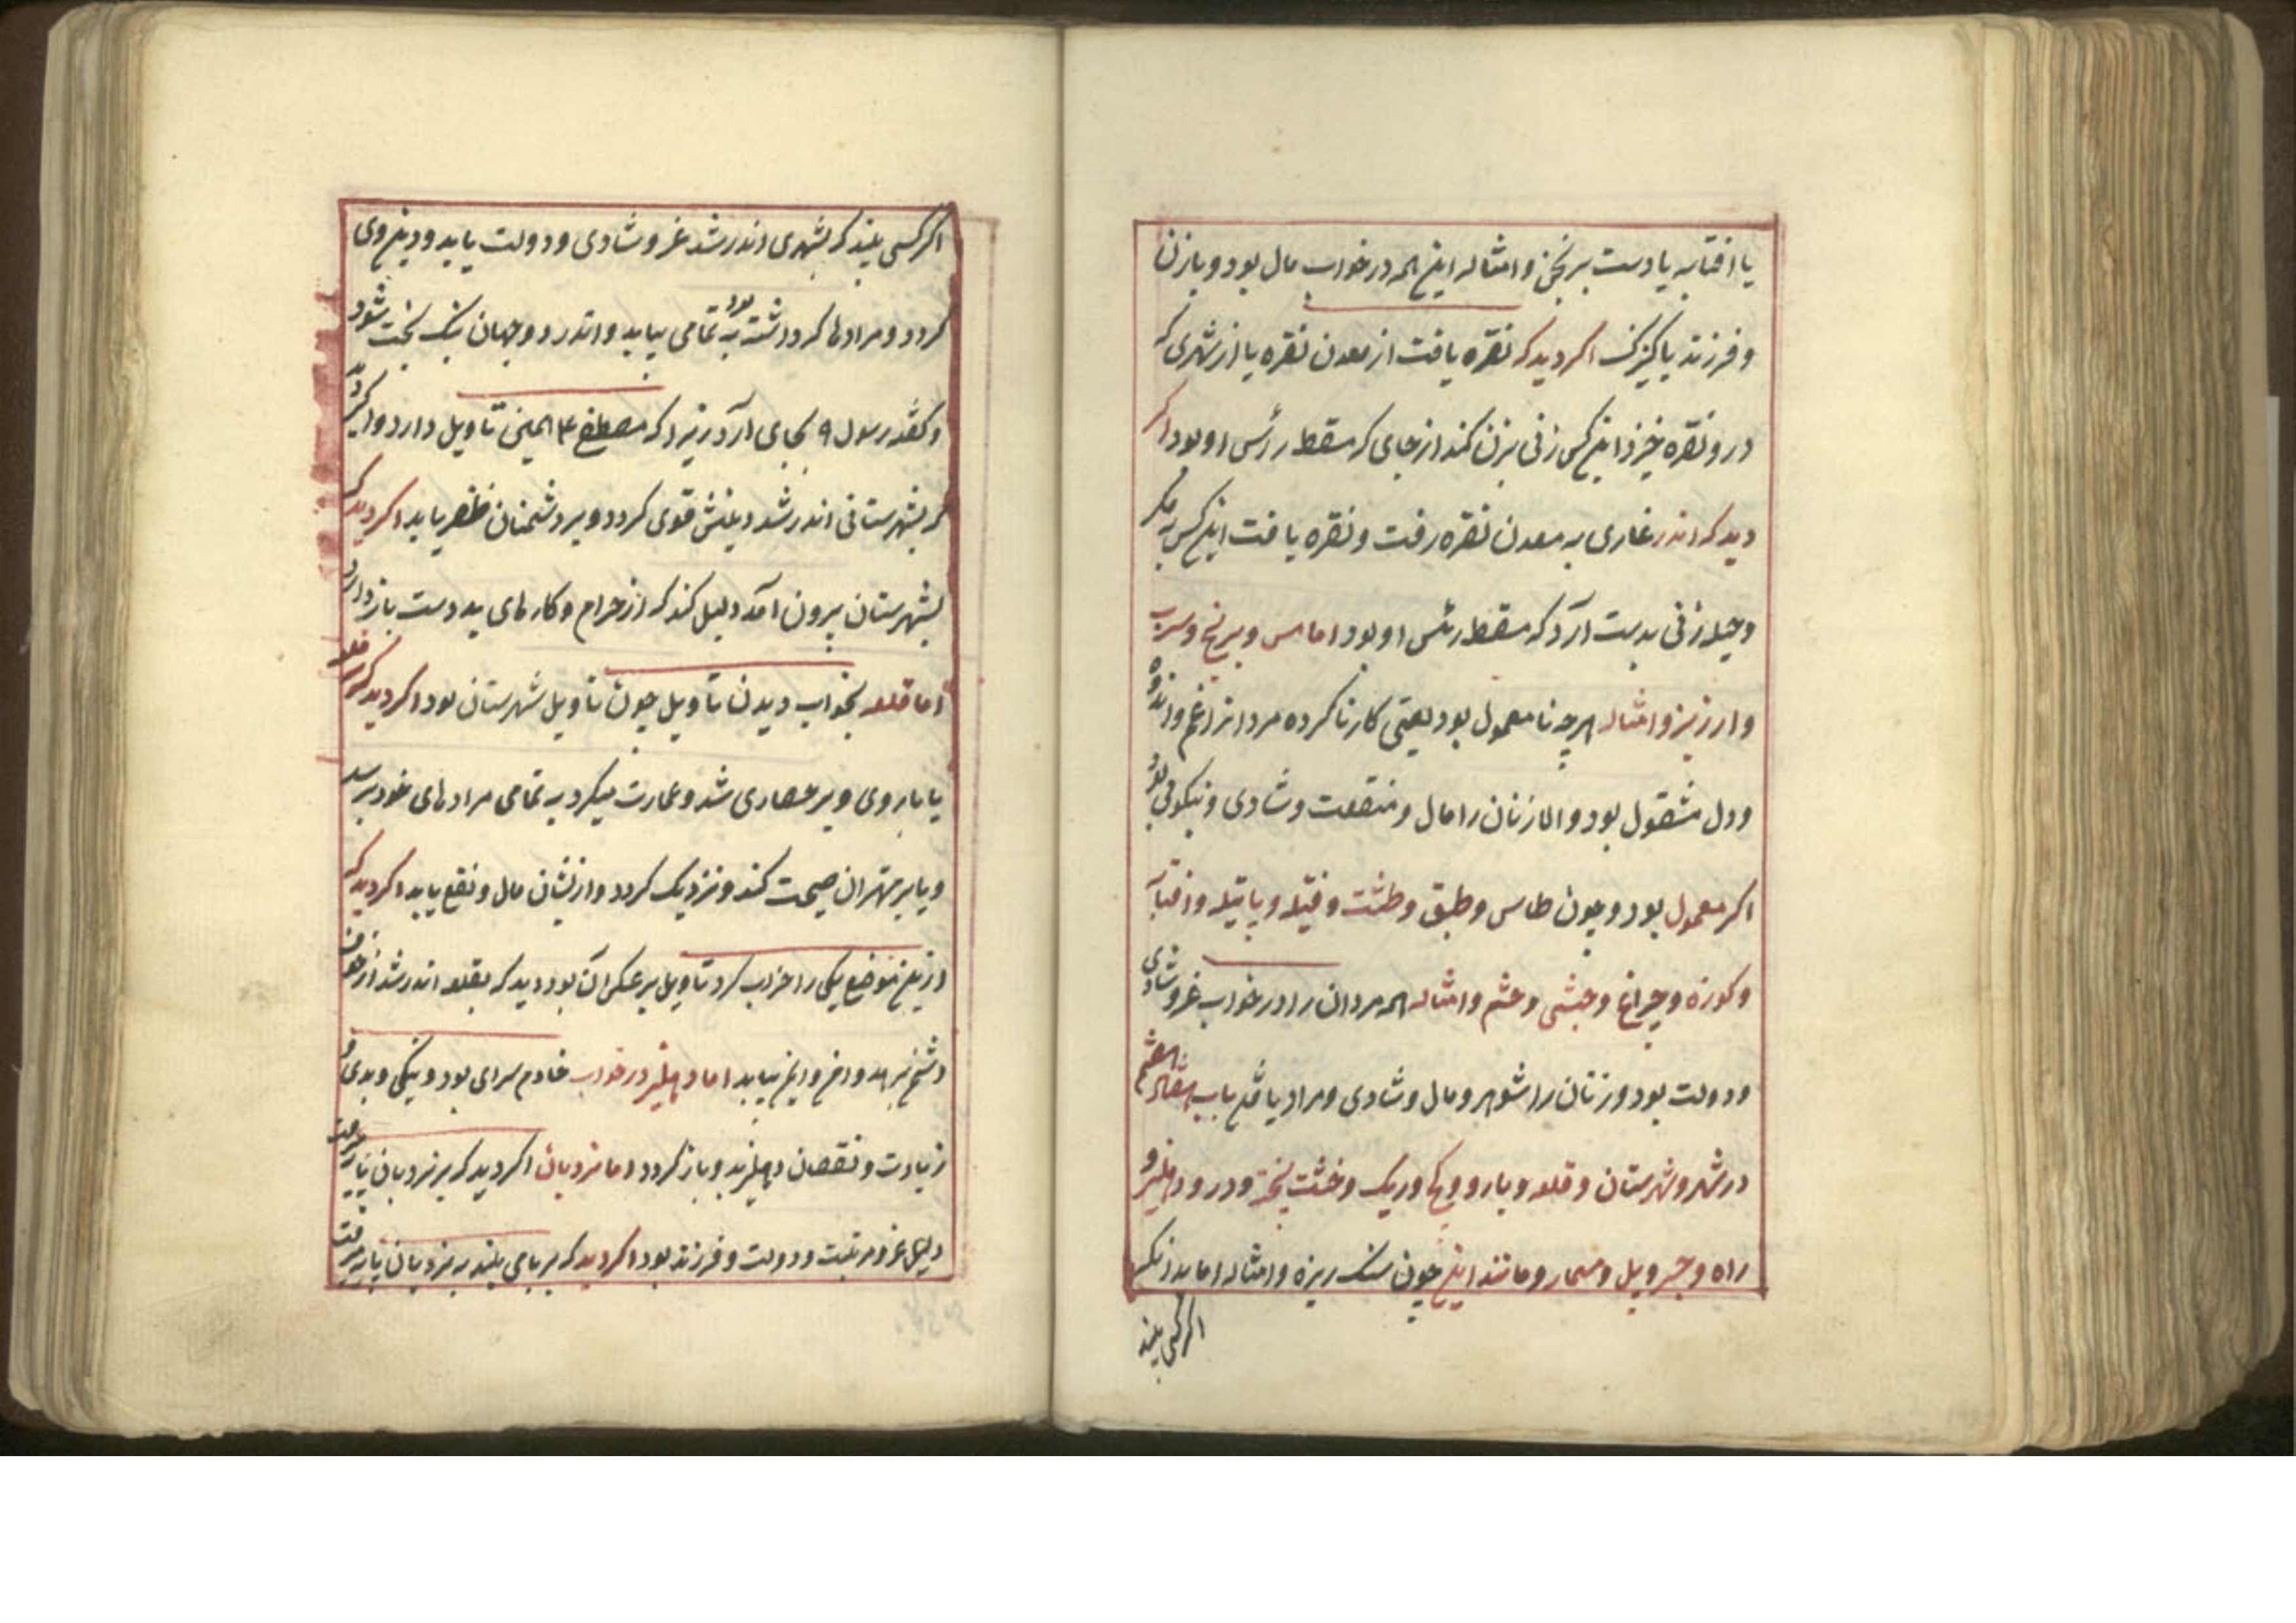 یا افتابه یا دست برنجن و امثاله این همه در خواب مال بود و یا زن
و فرزند یا کنیزک اکر دید که نقره یافت از معدن نقره یا از شهری که
درو نقره خیزد این کس زنی بزن کند از جای که مسقط رأس او بود اکر
دید که اندر غاری به معدن نقره رفت و نقره یافت این کس به مکر
و حیله زنی بدست آرد که مسقط رئس او بود اما مس و برنج و سرب
و ارزیز و امثاله هرچه نامعمول بود یعنی کار ناکرده مردانرا غم و اندوه
و دل مشغول بود و الا زنان را مال و منفعت و شادی و نیکویی بود
اکر معمول بود و چون طاس و طبق و طشت و فتیله و پاتیله و افتابه
و کوزه و چراغ و حبشی و حشم و امثاله همه مردان را در خواب عز و شادی
و دولت بود و زنان را شوهر و مال و شادی و مراد یافتن باب
در شهر و شهرستان و قلعه و بارو و کج و ریک و خشت پخته و در و دهلیز و
راه و جسر و پل و مسمار و مانند این چون سنک ریزه و امثاله اما بدانکه
اکر کسی بیند
اکر کسی بیند که بشهری اندر شد عز و شادی و دولت یابد و دین وی
کردد و مرادها کرد داشته بود به تمامی بیابد و اندر دو جهان نیک بخت شود
و کفته رسول بجای آرد زیرا که مصطفی همین تاویل دارد و اکر دید
که بشهرستانی اندر شد دینش قوی کردد و بر دشمنان ظفر یابد اکر دید که
بشهرستان بیرون آمد دلیل کند که از حرام و کارهای بد دست باز دارد
اما قلعه بخواب دیدن تاویل چون تاویل شهرستان بود اکر دید که بر قلعه
یا باروی و بر حصاری شد و عمارت میکرد به تمامی مرادهای خود برسد
و یا بر مهتران صحبت کند و نزدیک کردد و ازیشان مال و نفع یابد اکر دید که
ازین موضع یکی را خراب کرد تاویل بر عکس آن بود دید که بقلعه اندر شد از خوف
دشمن برهد و اما دهلیز در خواب خادم سرای بود و نیکی و بدی و
زیادت و نقصان دهلیز بدو باز کردد اما نردبان اکر دید که بر نردبان رفت
دلیل عز و مرتبت و دولت و فرزند بود اکر دید که بر بامی بلند به نردبان رفت